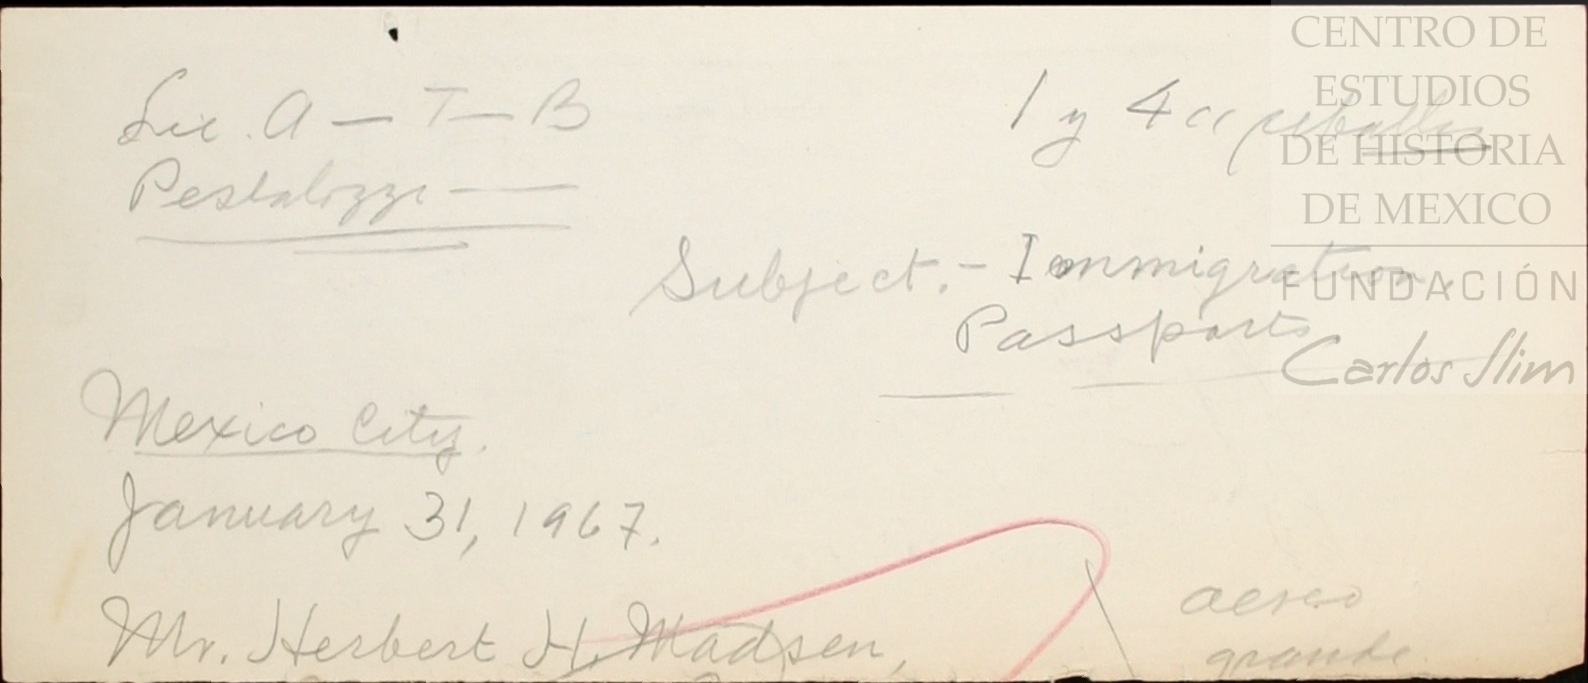 Lic. A — T — B
Pestalozzi —
1 y 4 cc
Subject.- Immigration,
Passports
Mexico City.
January 31, 1967.
Mr. Herbert H. Madsen,
aereo
grande
CENTRO DE
ESTUDIOS
DE HISTORIA
DE MEXICO
FUNDACIÓN
Carlos Slim